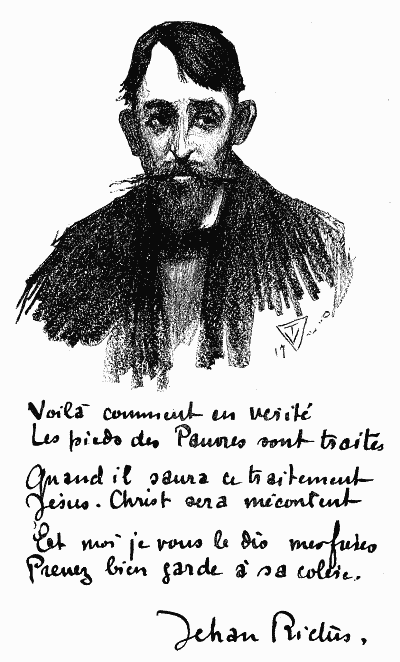 Voilà comment en verité
Les pieds des Pauvres sont traités
Quand il saura ce traitement
Jésus-Christ sera mécontent
Et moi je vous le dis mes frères
Prenez bien garde à sa colère.
Jehan Rictus.